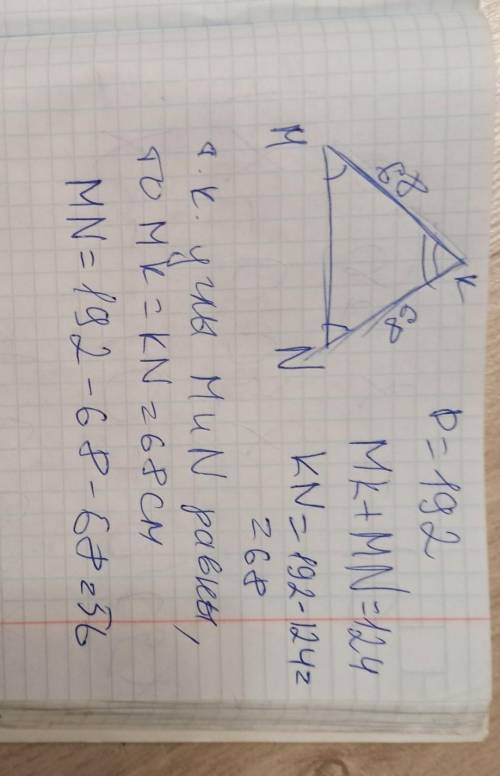 K
68
68
M
N
P=192
MK+MN=124
KN=192-124=
=68
т.к. углы M и N равны,
то MK=KN=68см
MN=192-68-68=56